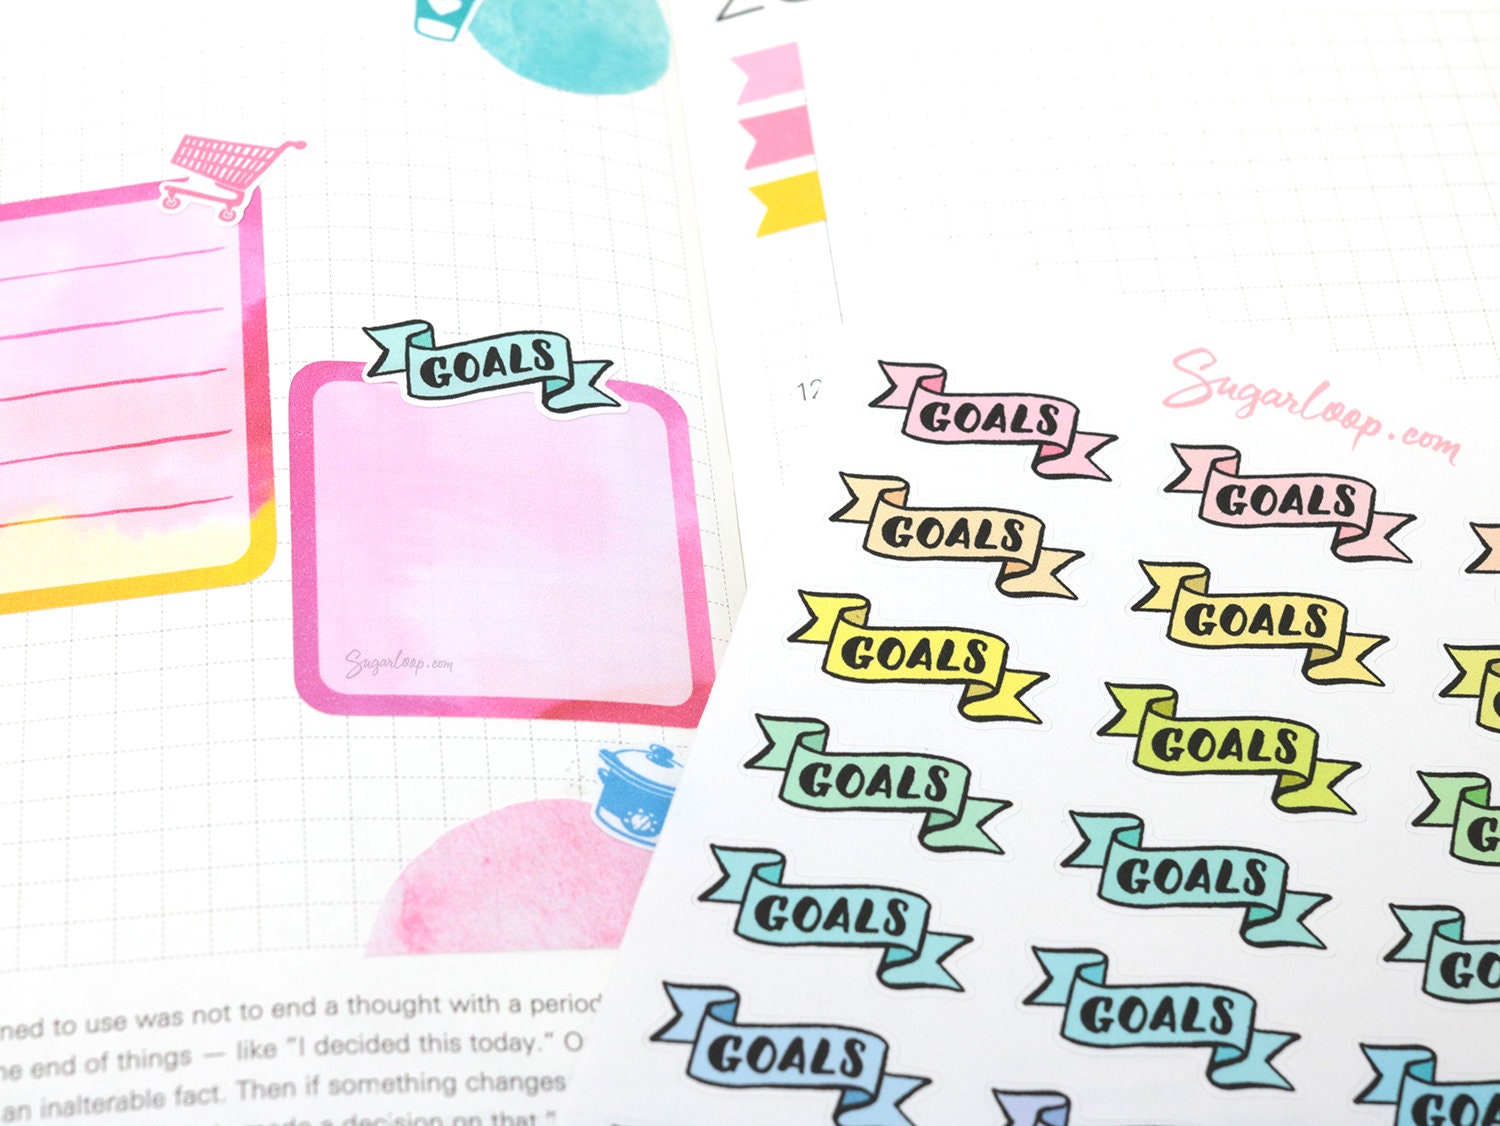 GOALS
Sugarloop.com
12
Sugarloop.com
GOALS
GOALS
GOALS
GOALS
GOALS
GOALS
GOALS
GOALS
GOALS
GOALS
GOALS
GOALS
to use was not to end a thought with a period
end of things — like "I decided this today." O
an inalterable fact. Then if something changes
a decision on that."